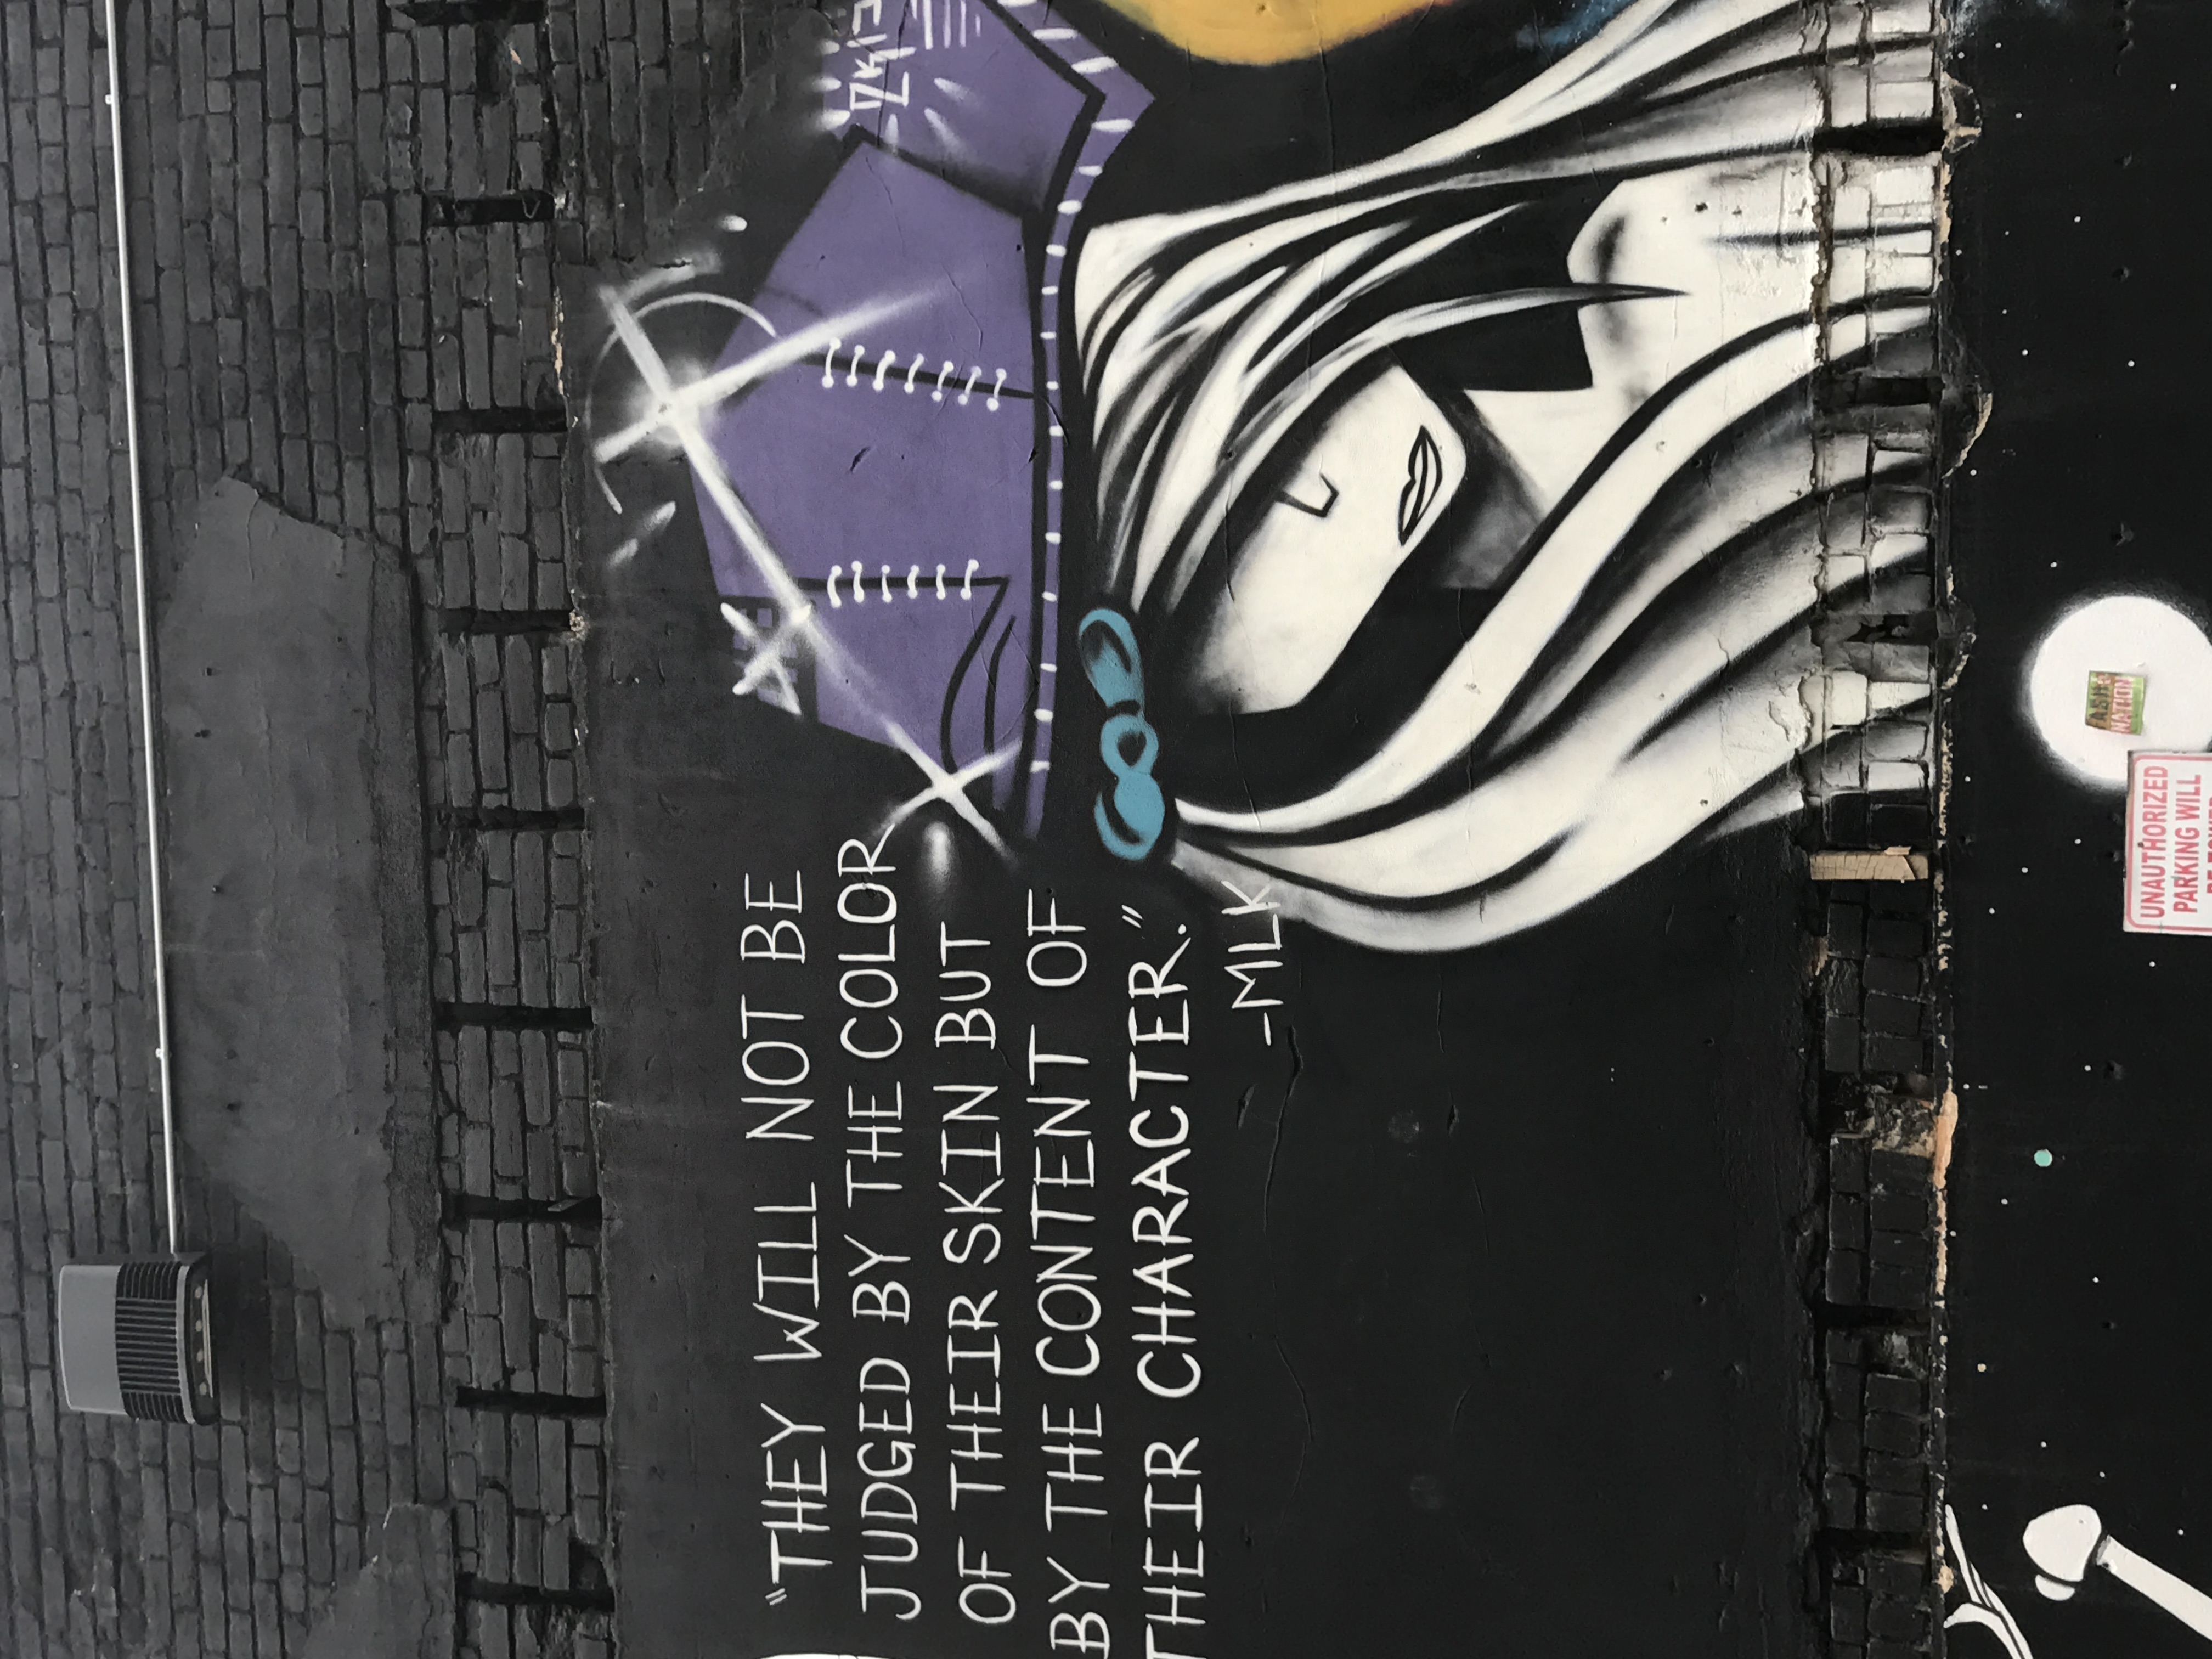 “THEY WILL NOT BE
JUDGED BY THE COLOR
OF THEIR SKIN BUT
BY THE CONTENT OF
THEIR CHARACTER.”
-MLK
NATION
UNAUTHORIZED
PARKING WILL
BE TOWED